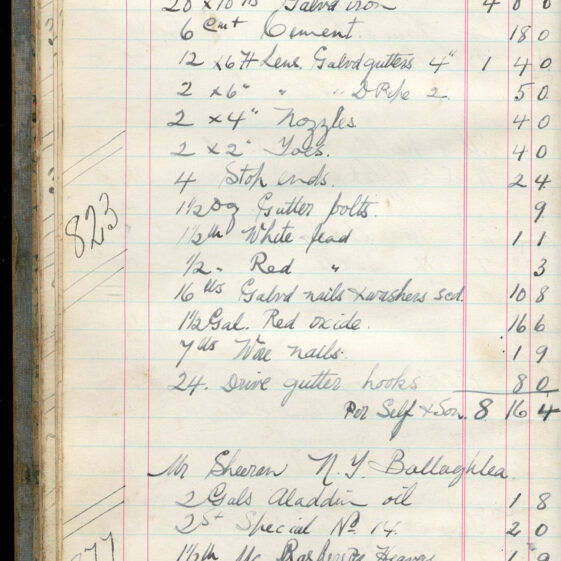 20 x 10 ft Galvd iron 4 0 0
6 Cwt Cement. 18 0
12 x 6 ft Lens. Galvd gutters 4" 1 4 0
2 x 6" " " D Pipe 2. 5 0
2 x 4" Nozzles. 4 0
2 x 2" Toes. 4 0
4 Stop ends. 2 4
1½ Dz Gutter bolts. 9
823
1½ lb White lead 1 1
½ " Red " 3
16 lbs Galvd nails & washers scd. 10 8
1½ Gal. Red oxide. 16 6
7 lbs Wire nails. 1 9
24. Drive gutter hooks 8 0
Per Self & Son. 8 16 4
Mr Sheeran N.S Ballaghlea.
2 Gals Aladdin oil 1 8
2 st Special No. 14. 2 0
1½ lb Mc 1 9